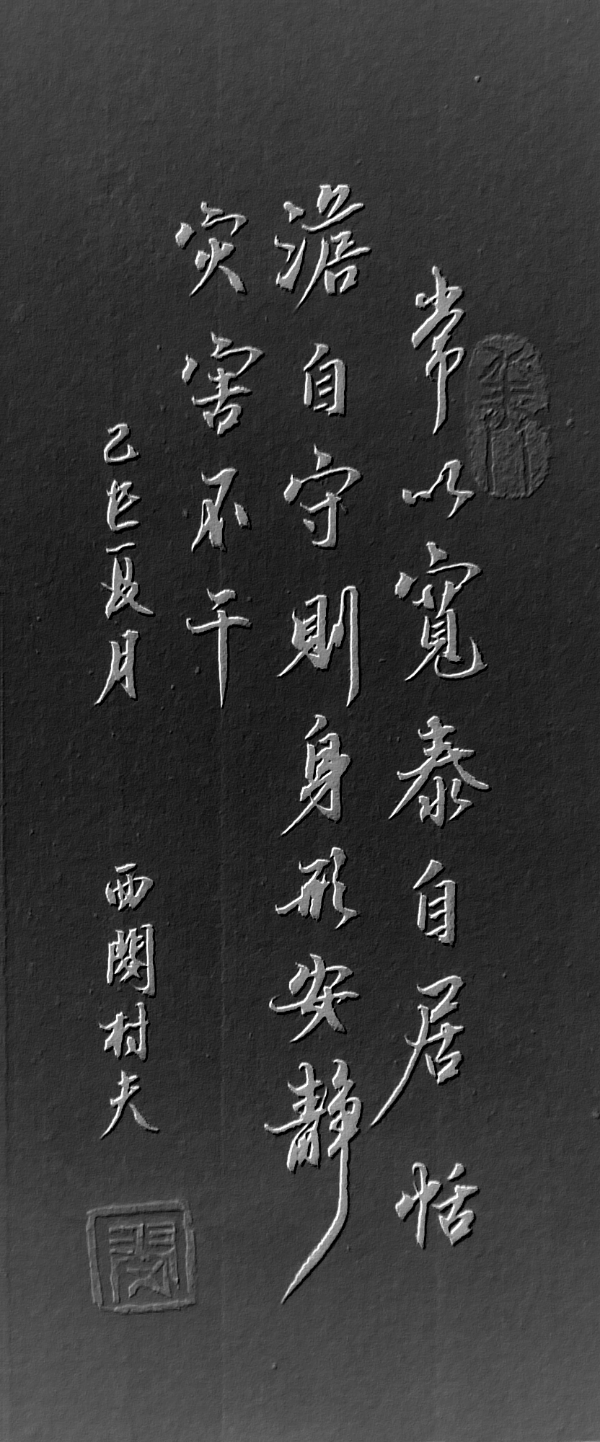 常以寬泰自居恬
澹自守則身形安靜
灾害不干
乙夏月 西閔村夫
閔